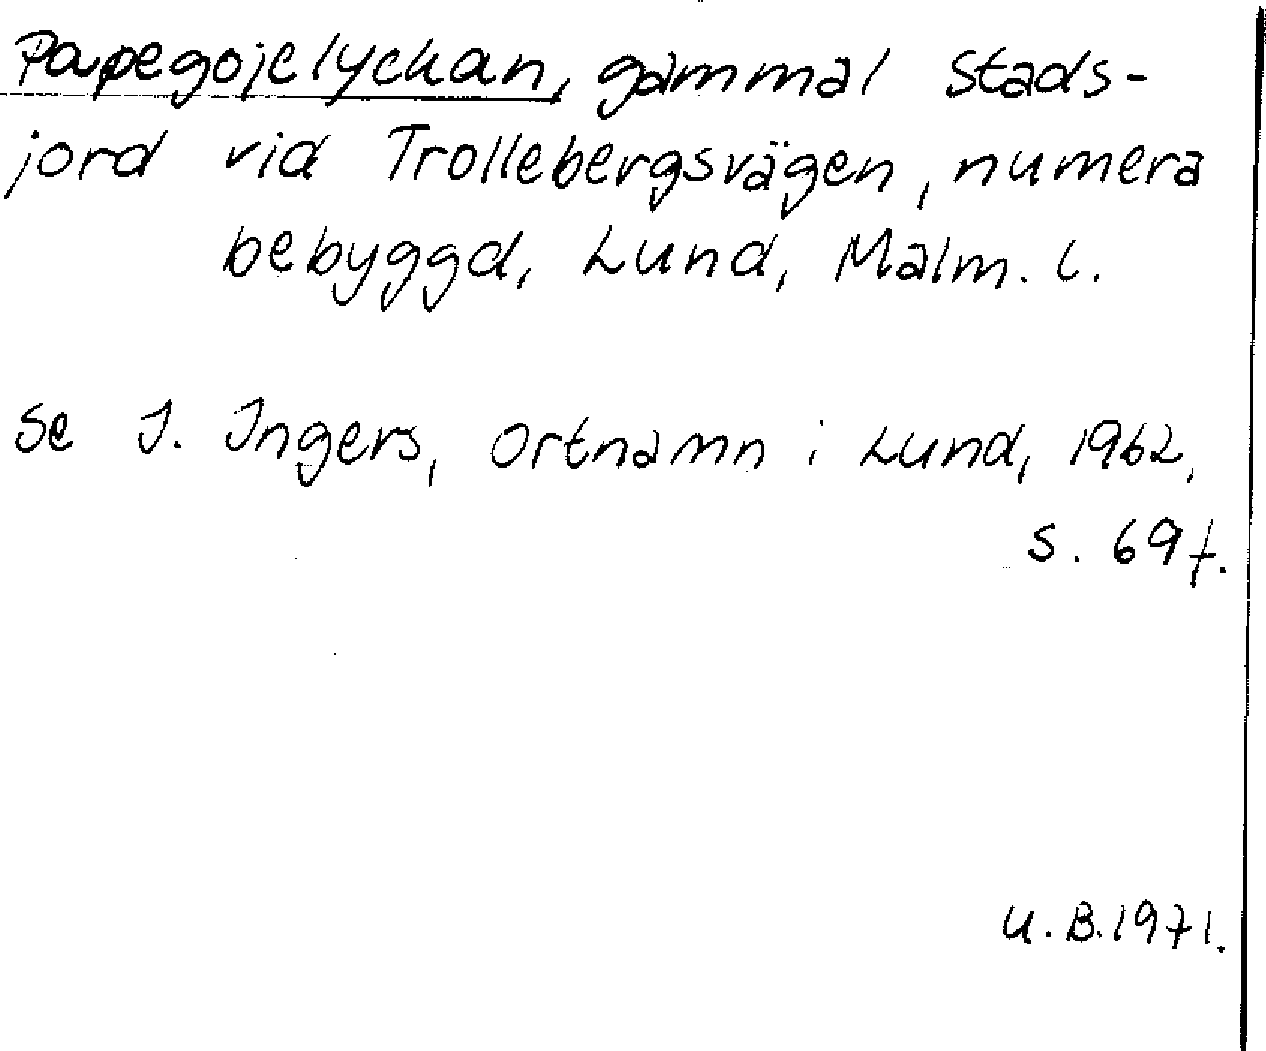 Papegojelyckan, gammal stads-
jord vid Trollebergsvägen, numera
bebyggd, Lund, Malm. l.
Se I. Ingers, Ortnamn i Lund, 1962,
s. 69f.
U.B.1971.